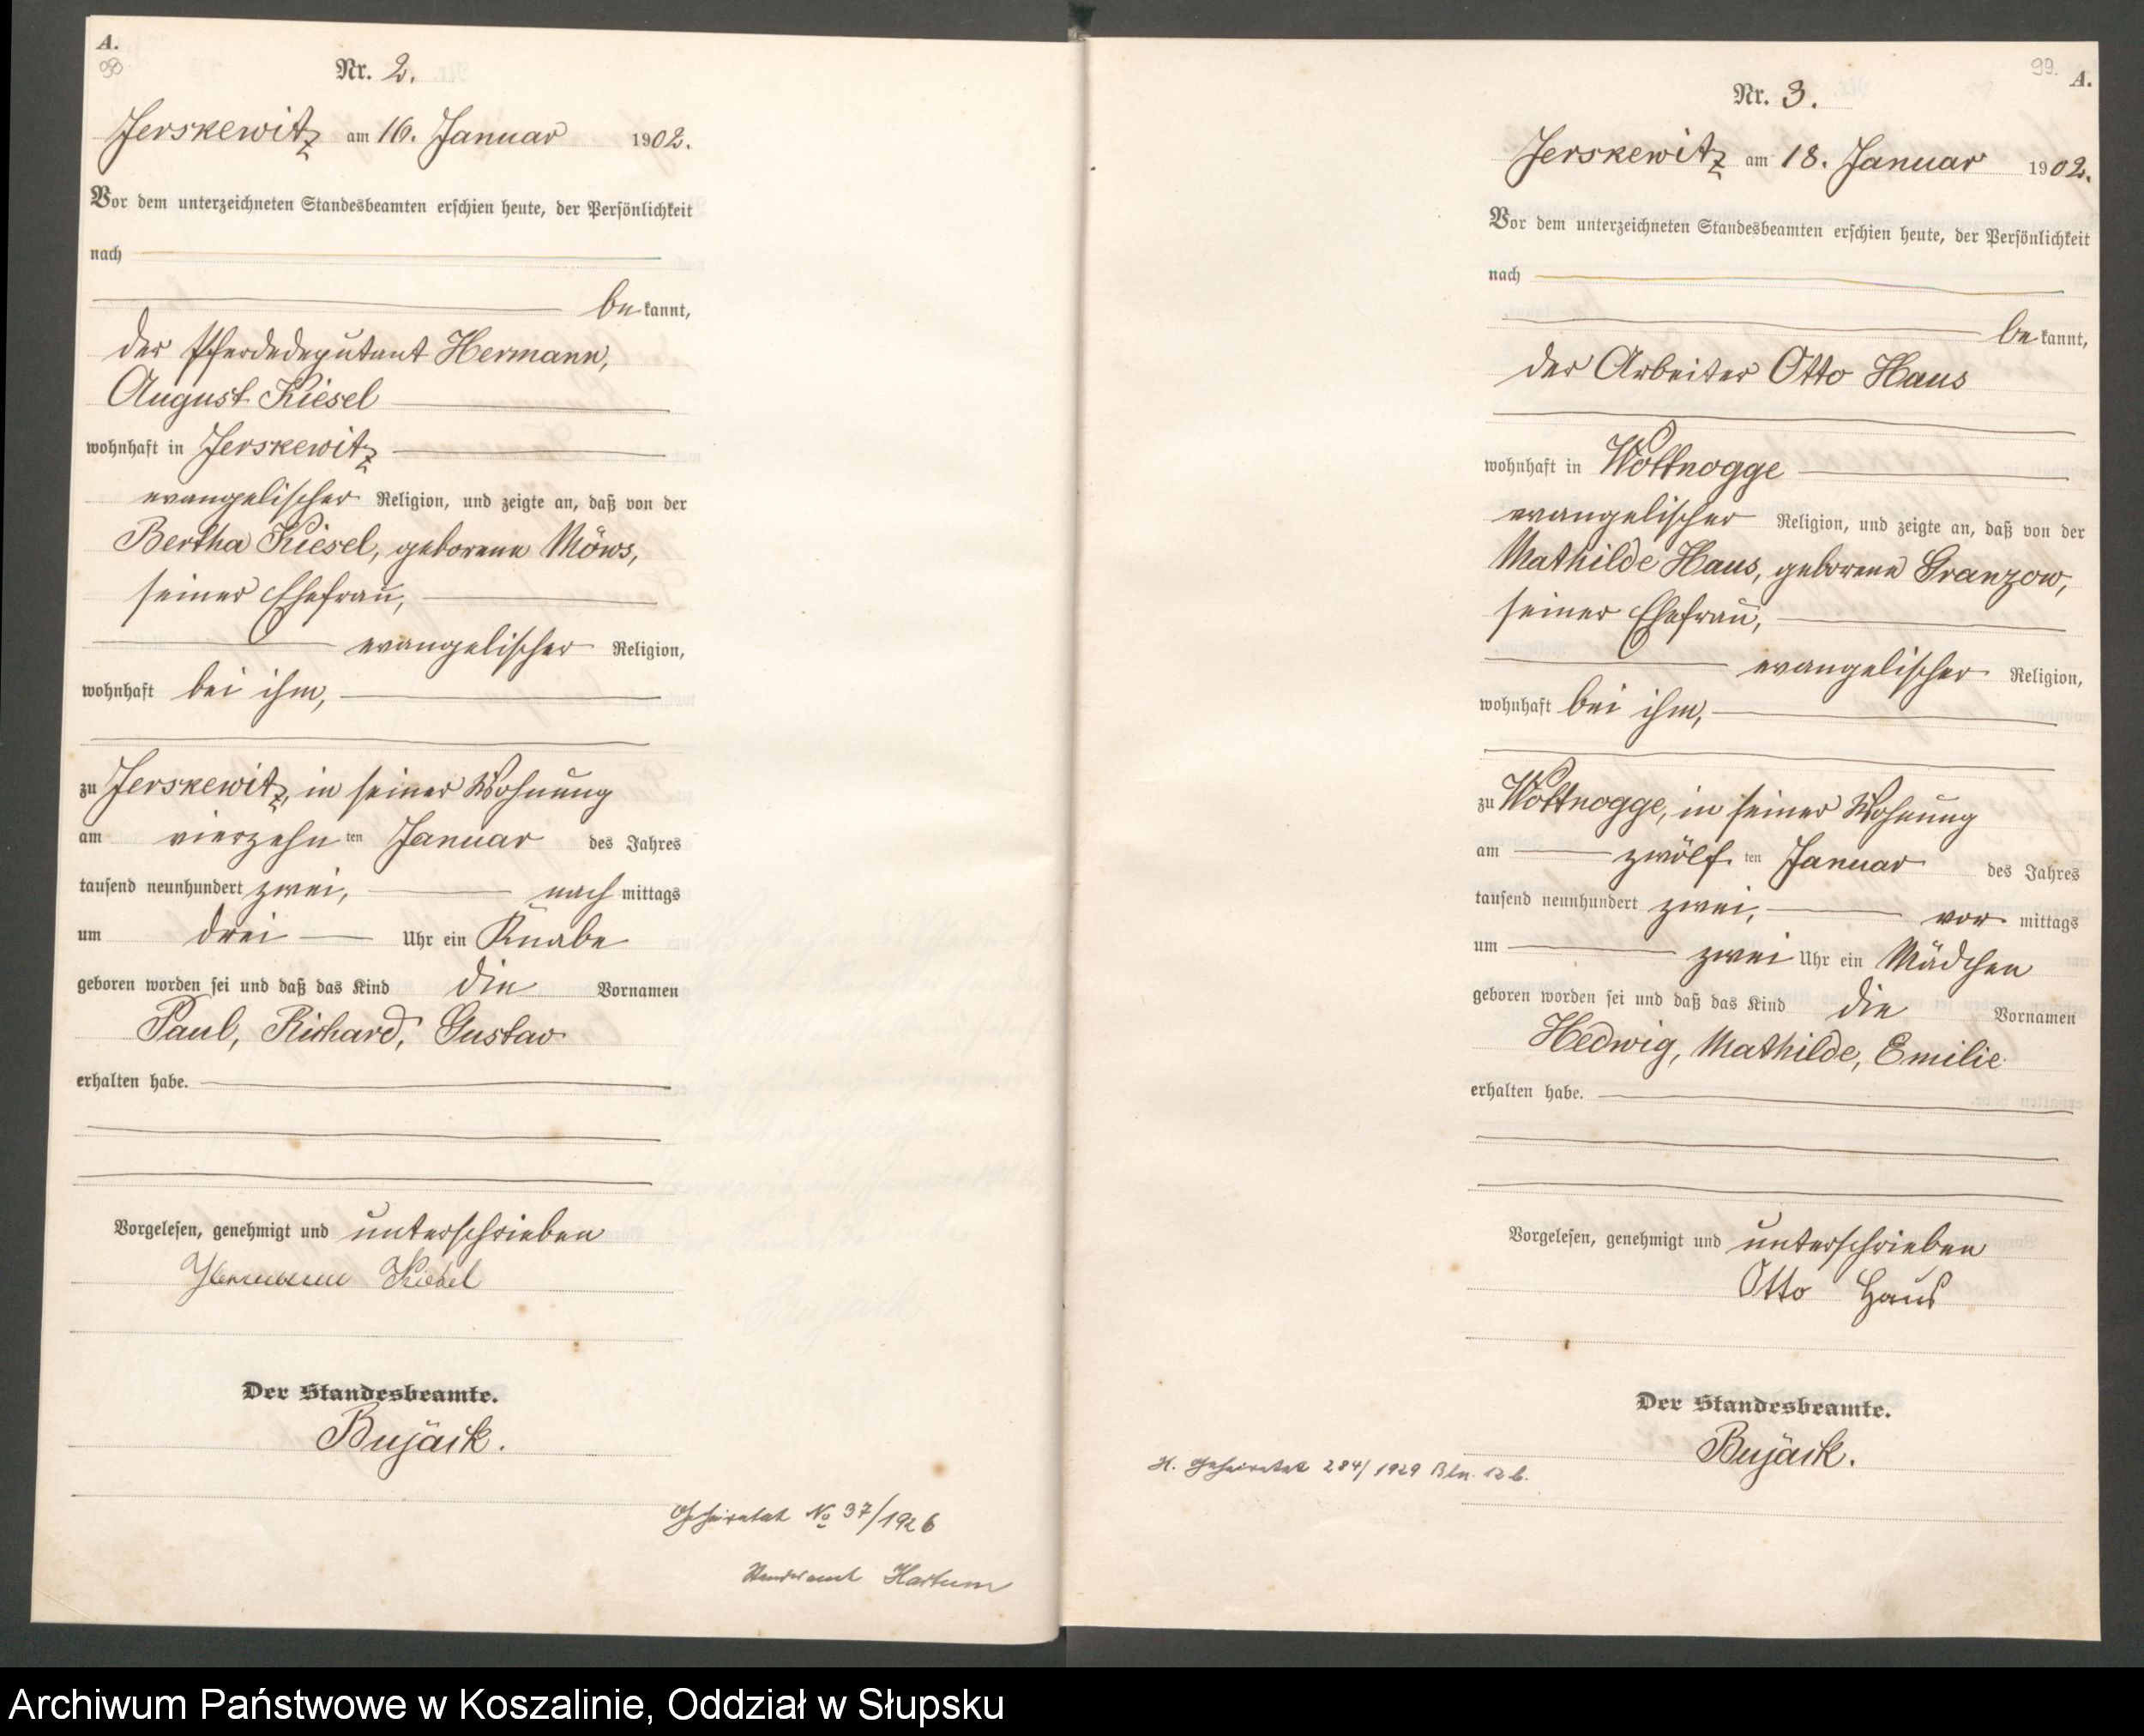 A.
98
Nr. 2.
Jerskewitz am 16. Januar 1902.
Vor dem unterzeichneten Standesbeamten erschien heute, der Persönlichkeit
nach
bekannt,
der Pferdedeputant Hermann,
August Kiesel
wohnhaft in Jerskewitz
evangelischer Religion, und zeigte an, daß von der
Bertha Kiesel, geborene Möws,
seiner Ehefrau,
evangelischer Religion,
wohnhaft bei ihm,
zu Jerskewitz, in seiner Wohnung
am vierzehnten Januar des Jahres
tausend neunhundert zwei, nachmittags
um drei Uhr ein Knabe
geboren worden sei und daß das Kind die Vornamen
Paul, Richard, Gustav
erhalten habe.
Vorgelesen, genehmigt und unterschrieben
Hermann Kiesel
Der Standesbeamte.
Bujack.
Geheiratet No 37/1926
Standesamt Hartum
99.
A.
Nr. 3.
Jerskewitz am 18. Januar 1902.
Vor dem unterzeichneten Standesbeamten erschien heute, der Persönlichkeit
nach
bekannt,
der Arbeiter Otto Haus
wohnhaft in Wottnogge
evangelischer Religion, und zeigte an, daß von der
Mathilde Haus, geborene Granzow,
seiner Ehefrau,
evangelischer Religion,
wohnhaft bei ihm,
zu Wottnogge, in seiner Wohnung
am zwölften Januar des Jahres
tausend neunhundert zwei, vormittags
um zwei Uhr ein Mädchen
geboren worden sei und daß das Kind die Vornamen
Hedwig, Mathilde, Emilie
erhalten habe.
Vorgelesen, genehmigt und unterschrieben
Otto Haus
Der Standesbeamte.
Bujack.
H. geheiratet 284/1929 Bln. 12b.
Archiwum Państwowe w Koszalinie, Oddział w Słupsku